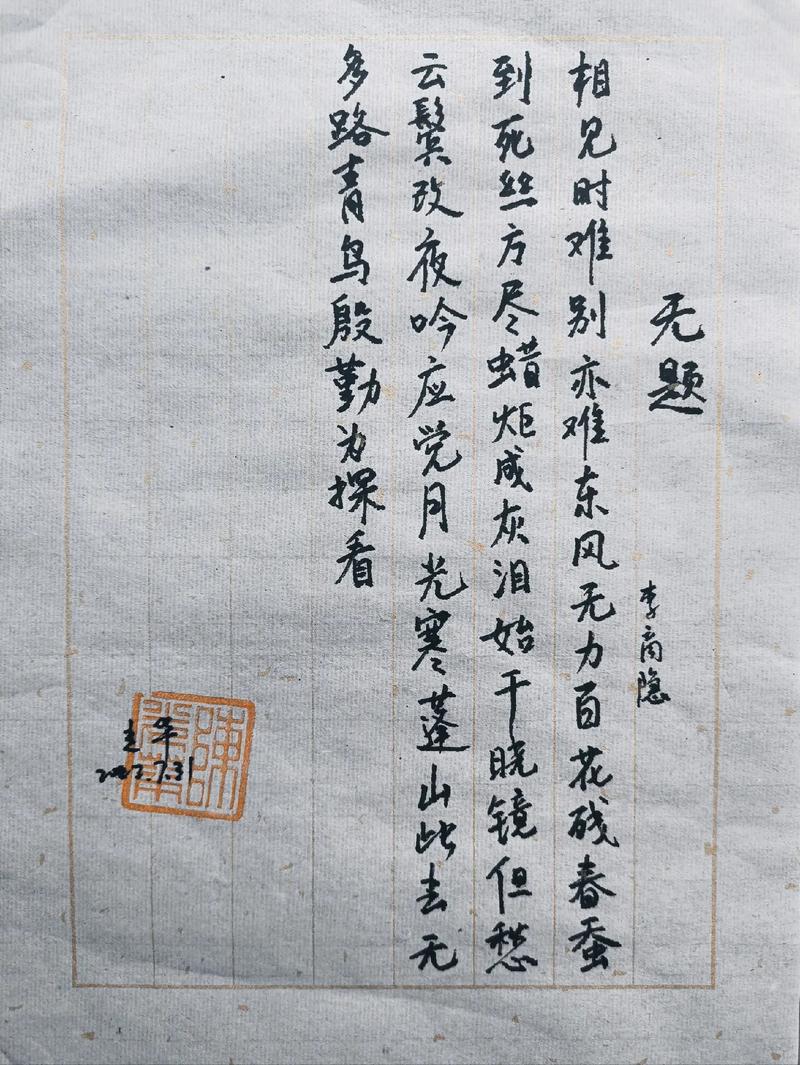 无题
李商隐
相见时难别亦难东风无力百花残春蚕
到死丝方尽蜡炬成灰泪始干晓镜但愁
云鬓改夜吟应觉月光寒蓬山此去无
多路青鸟殷勤为探看